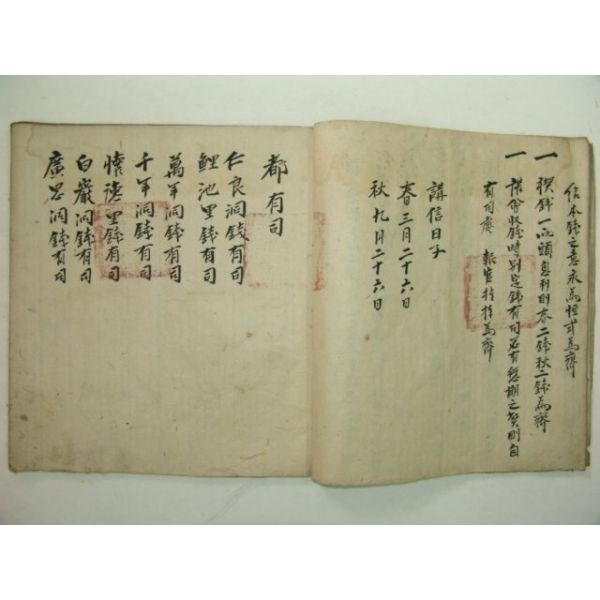 信本錢之意永爲恒式爲齊
一 稧錢一兩頭息利則春二錢秋二錢爲齊
一 諸員收錢時別定錢有司若有愆期之弊則自
有司處 報官捧爲齊
講信日子
春三月二十六日
秋九月二十六日
都有司
仁良洞錢有司
鯉池里錢有司
萬年洞錢有司
千年洞錢有司
懷德里錢有司
白巖洞錢有司
廣思洞錢有司